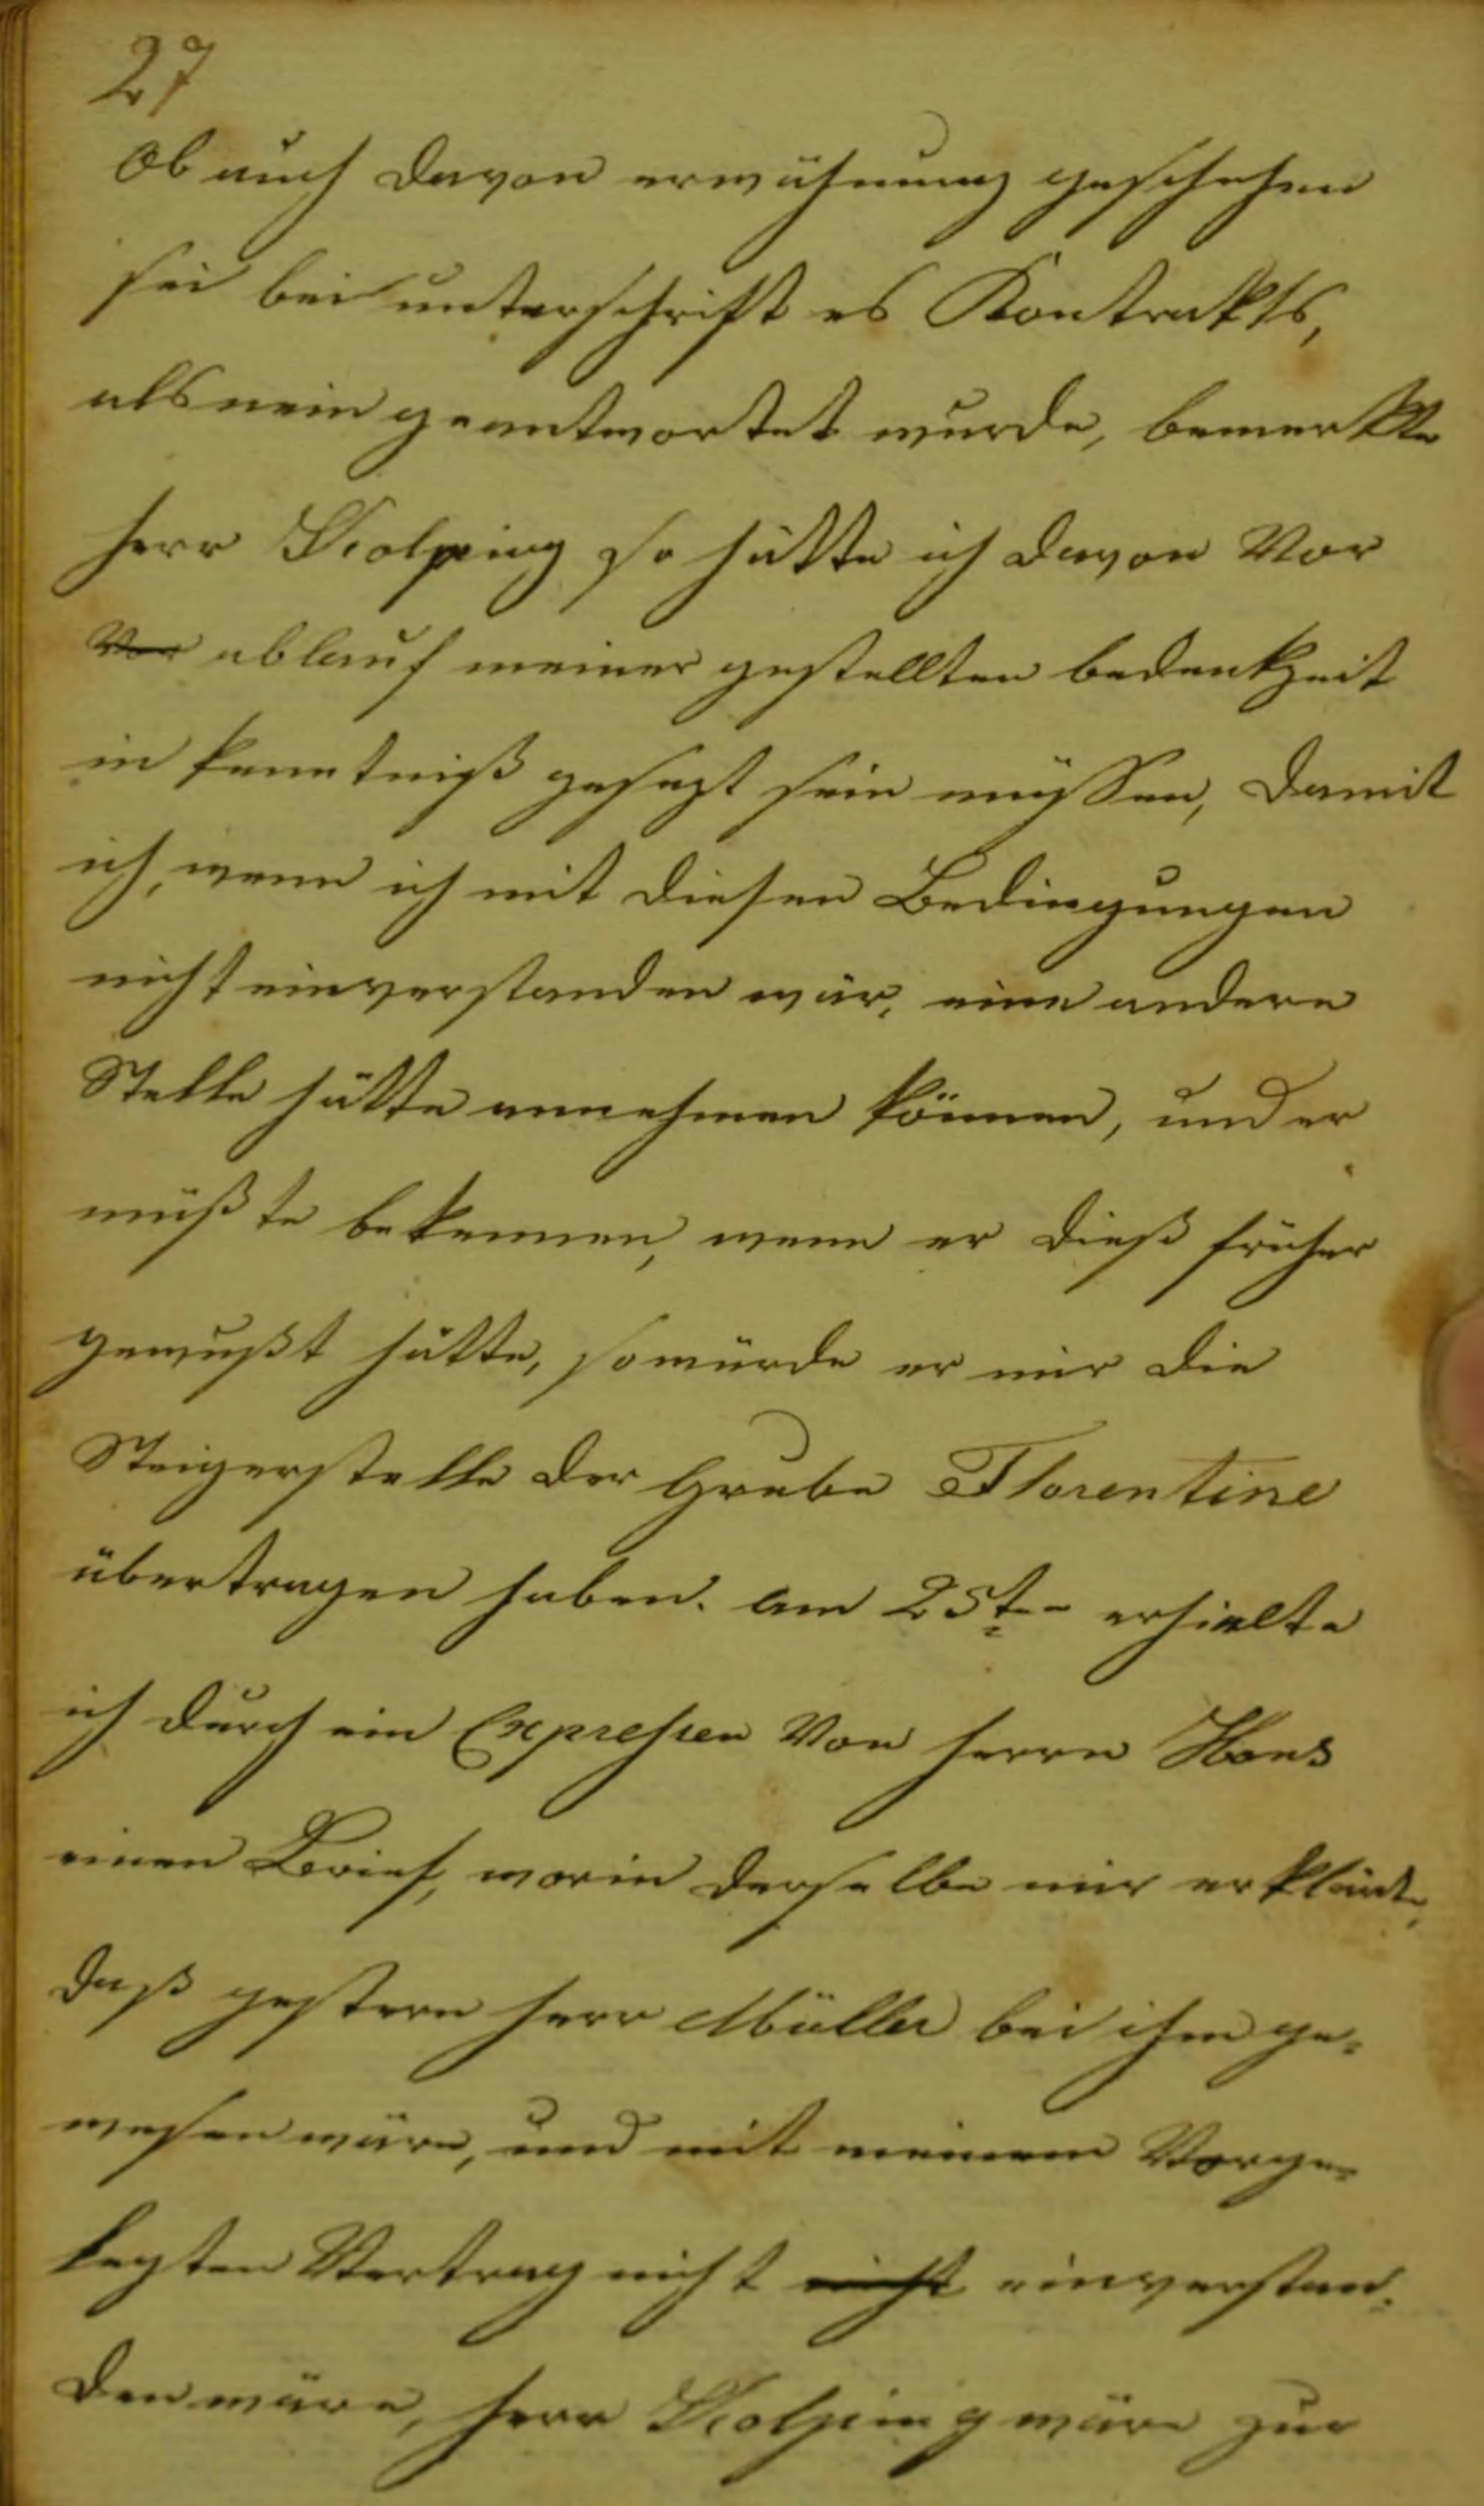 27
Ob auch davon erwähnung geschehen
sei bei unterschrift es Kontrakts,
als nein geantwortet wurde, bemerkte
Herr Kolping so hätte ich davon Vor
Vor ablauf meiner gestellten bedenkzeit
in kenntniß gesezt sein müssen, damit
ich, wenn ich mit diesen Bedingungen
nicht einverstanden wär, eine andere
Stelle hätte annehmen können, und er
müßte bekennen, wenn er dieß früher
gewußt hätte, so würde er mir die
Steigerstelle der Grube Florentine
übertragen haben. am 25t-- erhielte
ich durch ein Expressen Von Herrn
einen Brief, worin derselbe mir erklärte,
daß gestern Herr Müller bei ihm ge-
wesen wäre, und mit meinem Vorge-
legten Vertrag nicht nicht einverstan-
den wäre, Herr Kolping wäre zur